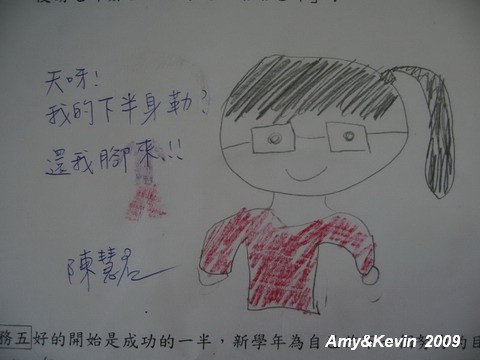 天呀!
我的下半身勒?
還我腳來!!
陳慧君
務五好的開始是成功的一半，新學年為自
Amy&Kevin 2009